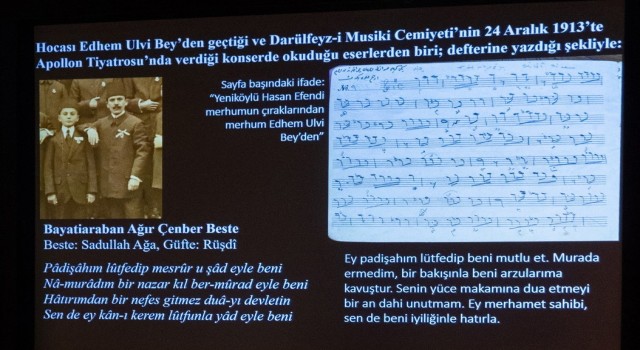 Hocası Edhem Ulvi Bey’den geçtiği ve Darülfeyz-i Musiki Cemiyeti’nin 24 Aralık 1913’te
Apollon Tiyatrosu’nda verdiği konserde okuduğu eserlerden biri; defterine yazdığı şekliyle:
Sayfa başındaki ifade:
“Yeniköylü Hasan Efendi
merhumun çıraklarından
merhum Edhem Ulvi
Bey’den”
Bayatiaraban Ağır Çenber Beste
Beste: Sadullah Ağa, Güfte: Rüşdî
Pâdişâhım lûtfedip mesrûr u şâd eyle beni
Nâ-murâdım bir nazar kıl ber-mûrad eyle beni
Hâtırımdan bir nefes gitmez duâ-yı devletin
Sen de ey kân-ı kerem lûtfunla yâd eyle beni
Ey padişahım lütfedip beni mutlu et. Murada
ermedim, bir bakışınla beni arzularıma
kavuştur. Senin yüce makamına dua etmeyi
bir an dahi unutmam. Ey merhamet sahibi,
sen de beni iyiliğinle hatırla.